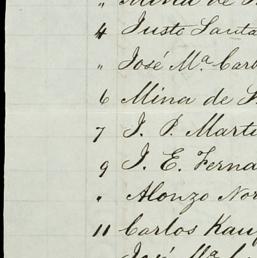 " Mina de
4 Justo Santa
" José Mª Carb
6 Mina de S
7 J. P. Marti
9 J. E. Ferna
" Alonzo Nor
11 Carlos Kau
José Mª